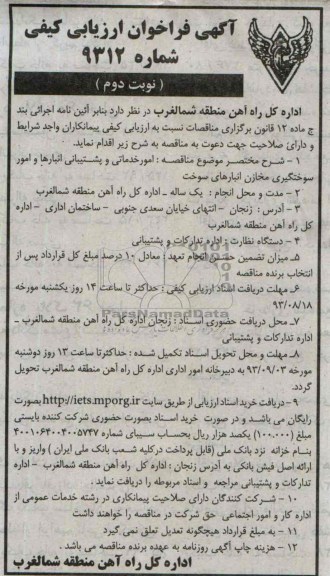 آگهی فراخوان ارزیابی کیفی
شماره ۹۳۱۲
( نوبت دوم )
اداره کل راه آهن منطقه شمالغرب در نظر دارد بنابر آئین نامه اجرائی بند
ج ماده ۱۲ قانون برگزاری مناقصات نسبت به ارزیابی کیفی پیمانکاران واجد شرایط
و دارای صلاحیت جهت دعوت به مناقصه به شرح زیر اقدام نماید.
۱ – شرح مختصر موضوع مناقصه : امورخدماتی و پشتیبانی انبارها و امور
سوختگیری مخازن انبارهای سوخت
۲ – مدت و محل انجام : یک ساله – اداره کل راه آهن منطقه شمالغرب
۳ – آدرس : زنجان – انتهای خیابان سعدی جنوبی – ساختمان اداری – اداره
کل راه آهن منطقه شمالغرب
۴ – دستگاه نظارت : اداره تدارکات و پشتیبانی
۵ – میزان تضمین حسن انجام تعهد : معادل ۱۰ درصد مبلغ کل قرارداد پس از
انتخاب برنده مناقصه
۶ – مهلت دریافت اسناد ارزیابی کیفی : حداکثر تا ساعت ۱۴ روز یکشنبه مورخه
۹۳/۰۸/۱۸
۷ – محل دریافت حضوری اسناد : زنجان اداره کل راه آهن منطقه شمالغرب –
اداره تدارکات و پشتیبانی
۸ – مهلت و محل تحویل اسناد تکمیل شده : حداکثر تا ساعت ۱۳ روز دوشنبه
مورخه ۹۳/۰۹/۰۳ به دبیرخانه امور اداری اداره کل راه آهن منطقه شمالغرب تحویل
گردد.
۹ – دریافت خرید اسناد ارزیابی از طریق سایت http://iets.mporg.ir بصورت
رایگان می باشد و در صورت خرید اسناد بصورت حضوری شرکت کننده بایستی
مبلغ (۱۰۰.۰۰۰) یکصد هزار ریال بحساب سیبای شماره ۴۰۰۱۰۶۴۰۰۴۰۰۵۷۴۷
بنام خزانه نزد بانک ملی (قابل پرداخت در کلیه شعب بانک ملی ایران ) واریز و با
ارائه اصل فیش بانکی به آدرس زنجان : اداره کل راه آهن منطقه شمالغرب – اداره
تدارکات و پشتیبانی مراجعه و اسناد مربوطه را دریافت نماید.
۱۰ – شرکت کنندگان دارای صلاحیت پیمانکاری در رشته خدمات عمومی از
اداره کار و امور اجتماعی حق شرکت در مناقصه را خواهند داشت
۱۱ – به مبلغ قرارداد هیچگونه تعدیل تعلق نمی گیرد
۱۲ – هزینه چاپ آگهی روزنامه به عهده برنده مناقصه می باشد .
اداره کل راه آهن منطقه شمالغرب